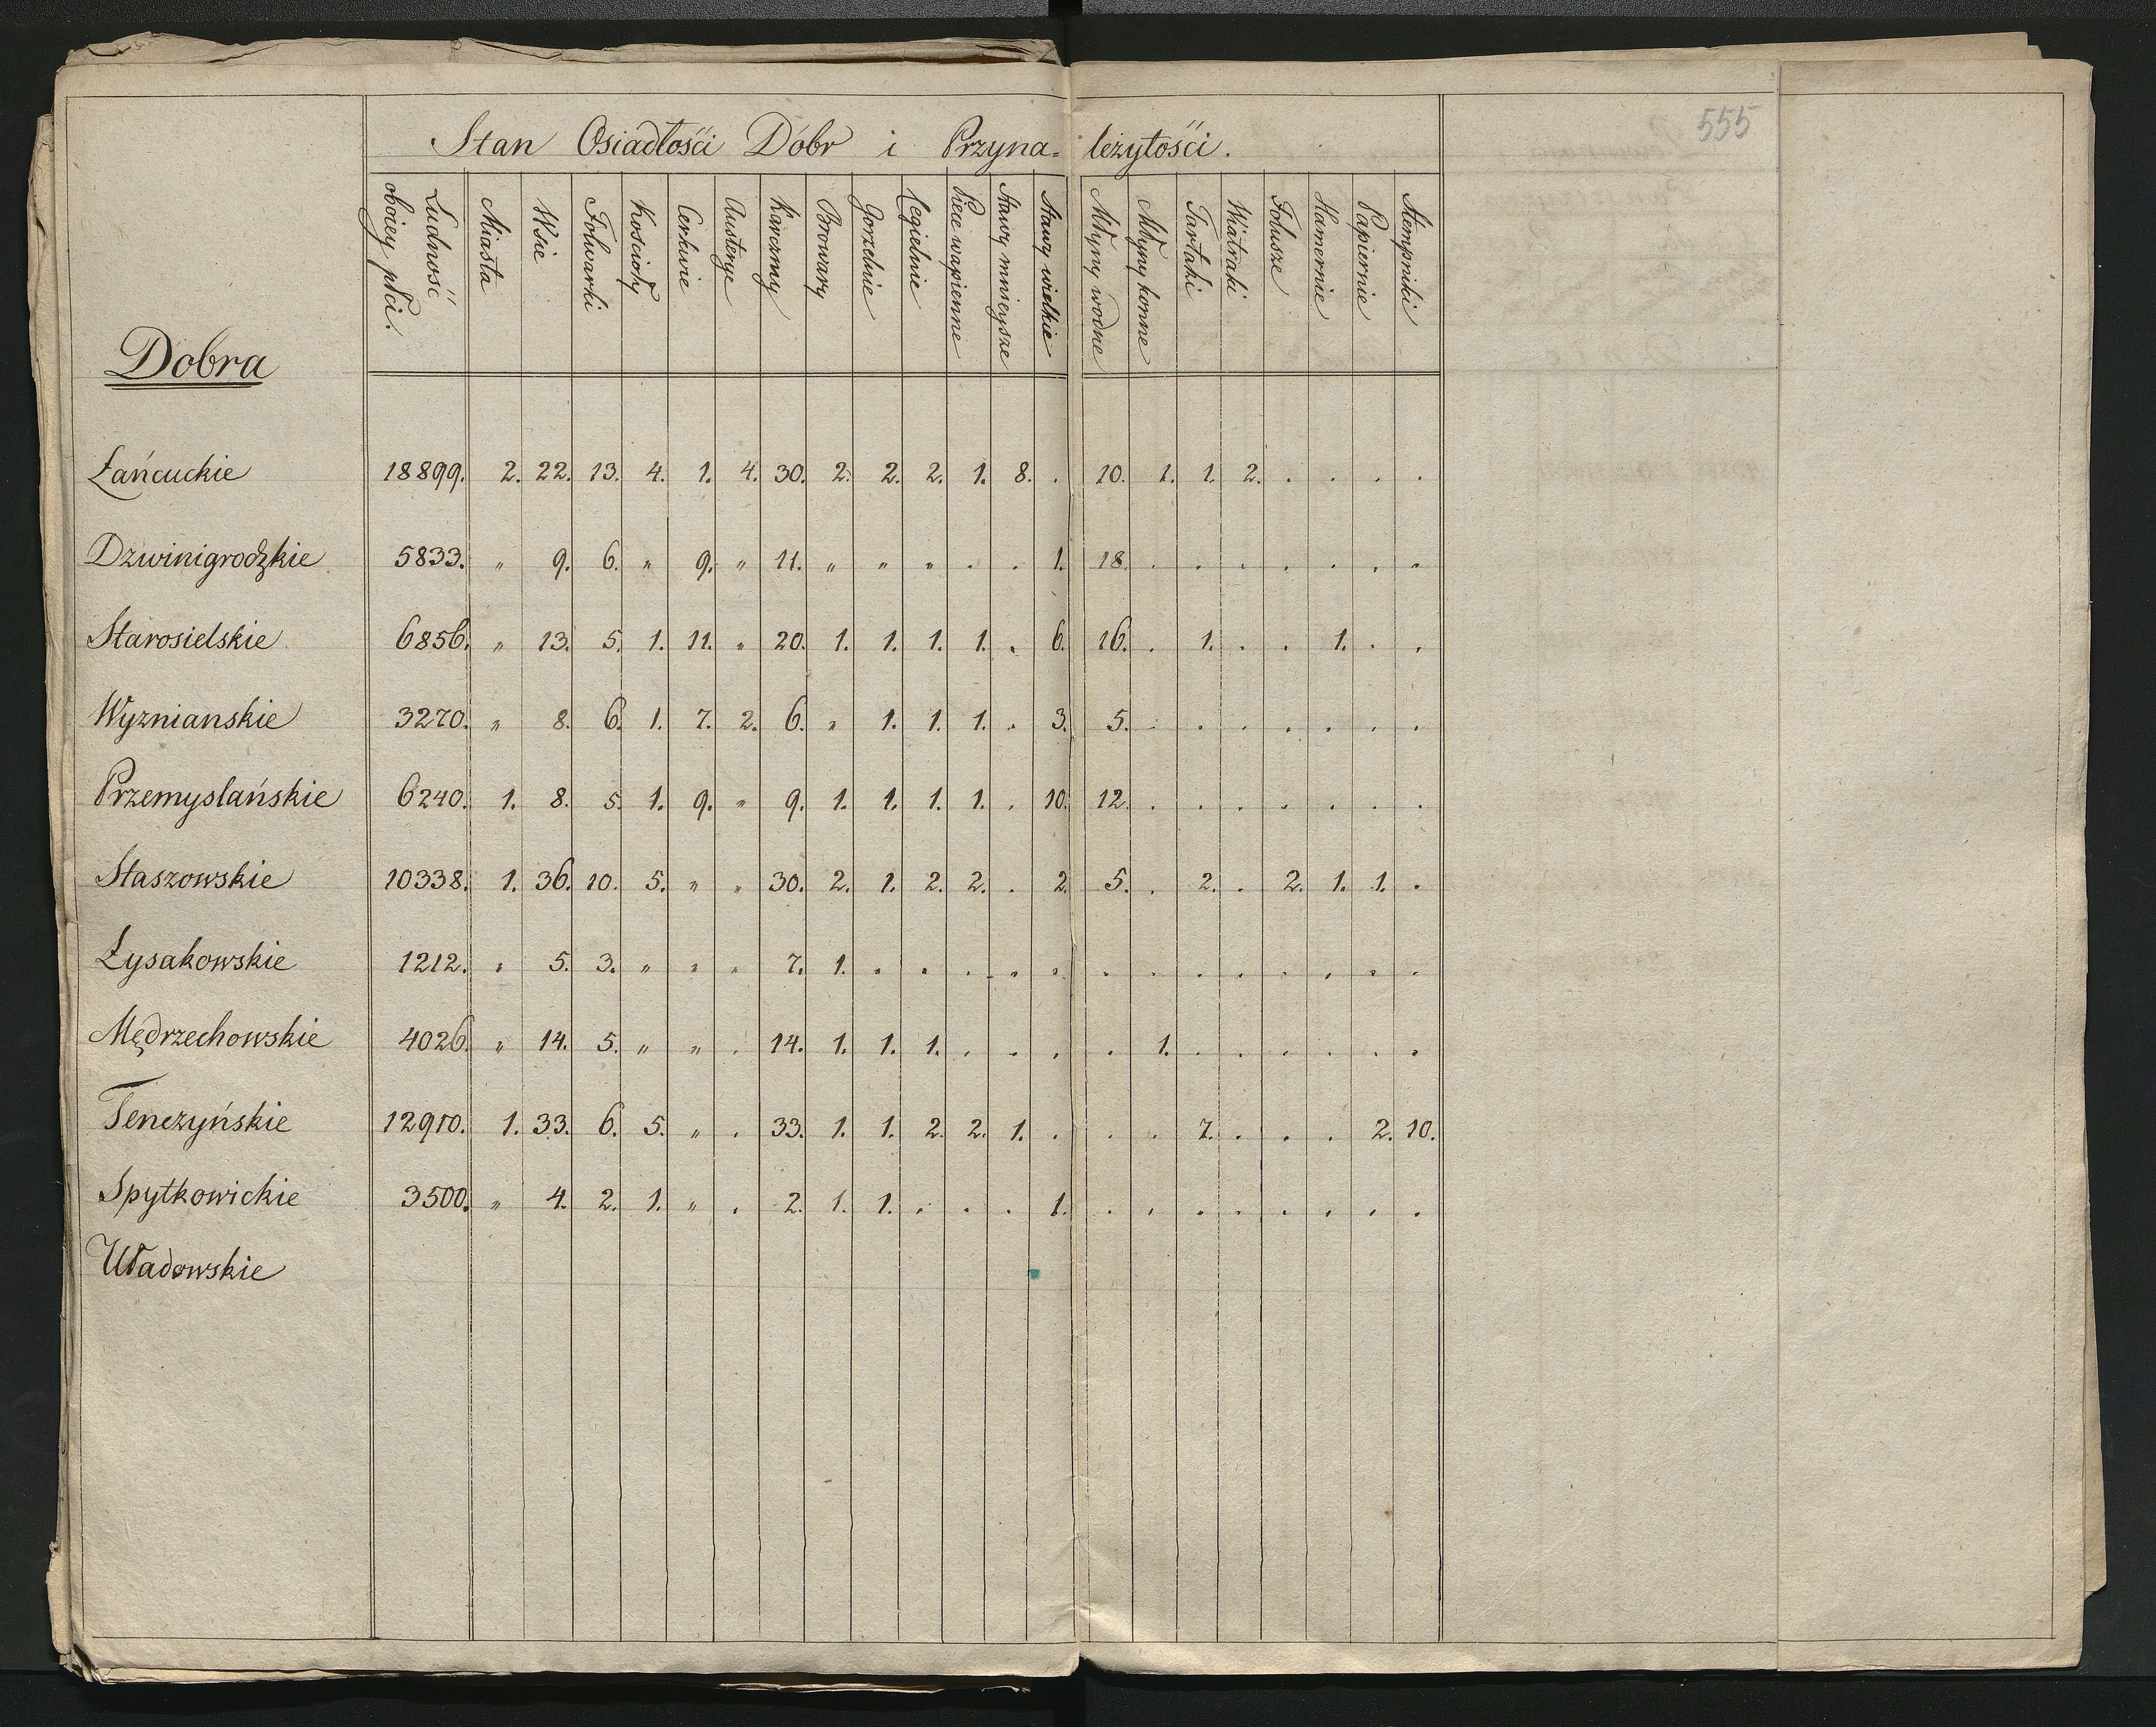 555
Stan Osiadłości Dóbr i Przyna= leżytości.
Dobra
Ludność oboiey płci.
Miasta
Wsie
Folwarki
Kościoły
Cerkwie
Austerye
Karczmy
Browary
Gorzelnie
Cegielnie
Piece wapienne
Stawy mnieysze
Stawy wielkie
Młyny wodne
Młyny konne
Tartaki
Wiatraki
Folusze
Hamernie
Papiernie
Stempniki
Łańcuckie 18899. 2. 22. 13. 4. 1. 4. 30. 2. 2. 2. 1. 8. . 10. 1. 1. 2. . . . .
Dzwinigrodzkie 5833. „ 9. 6. „ 9. „ 11. „ „ „ . . 1. 18. . . . . . . .
Starosielskie 6856. „ 13. 5. 1. 11. „ 20. 1. 1. 1. 1. . 6. 16. . 1. . . 1. . .
Wyznianskie 3270. „ 8. 6. 1. 7. 2. 6. „ 1. 1. 1. . 3. 5. . . . . . . .
Przemyslańskie 6240. 1. 8. 5. 1. 9. „ 9. 1. 1. 1. 1. . 10. 12. . . . . . . .
Staszowskie 10338. 1. 36. 10. 5. „ „ 30. 2. 1. 2. 2. . 2. 5. . 2. . 2. 1. 1. .
Łysakowskie 1212. „ 5. 3. „ „ „ 7. 1. . . . . . . . . . . . . .
Mędrzechowskie 4026. „ 14. 5. „ „ . 14. 1. 1. 1. . . . . 1. . . . . . .
Tenczyńskie 12910. 1. 33. 6. 5. „ . 33. 1. 1. 2. 2. 1. . . . 7. . . . 2. 10.
Spytkowickie 3500. „ 4. 2. 1. „ . 2. 1. 1. . . . 1. . . . . . . . .
Uładowskie